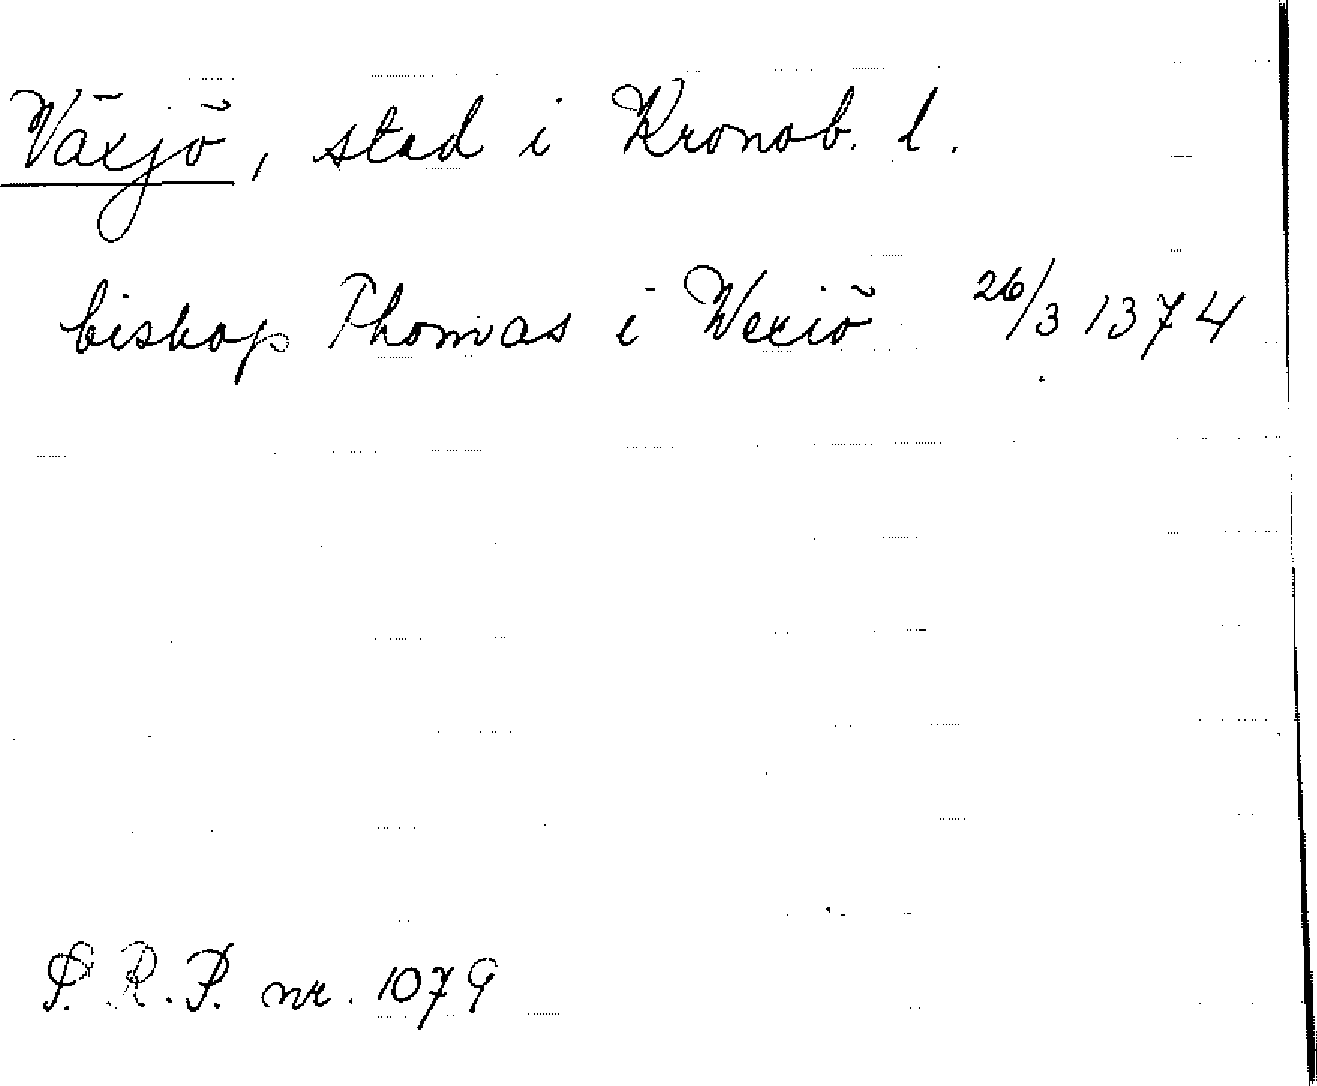 Växjö, stad i Kronob. l.
biskop Thomas i Wexiö 26/3 1374
S.R.P. nr. 1079